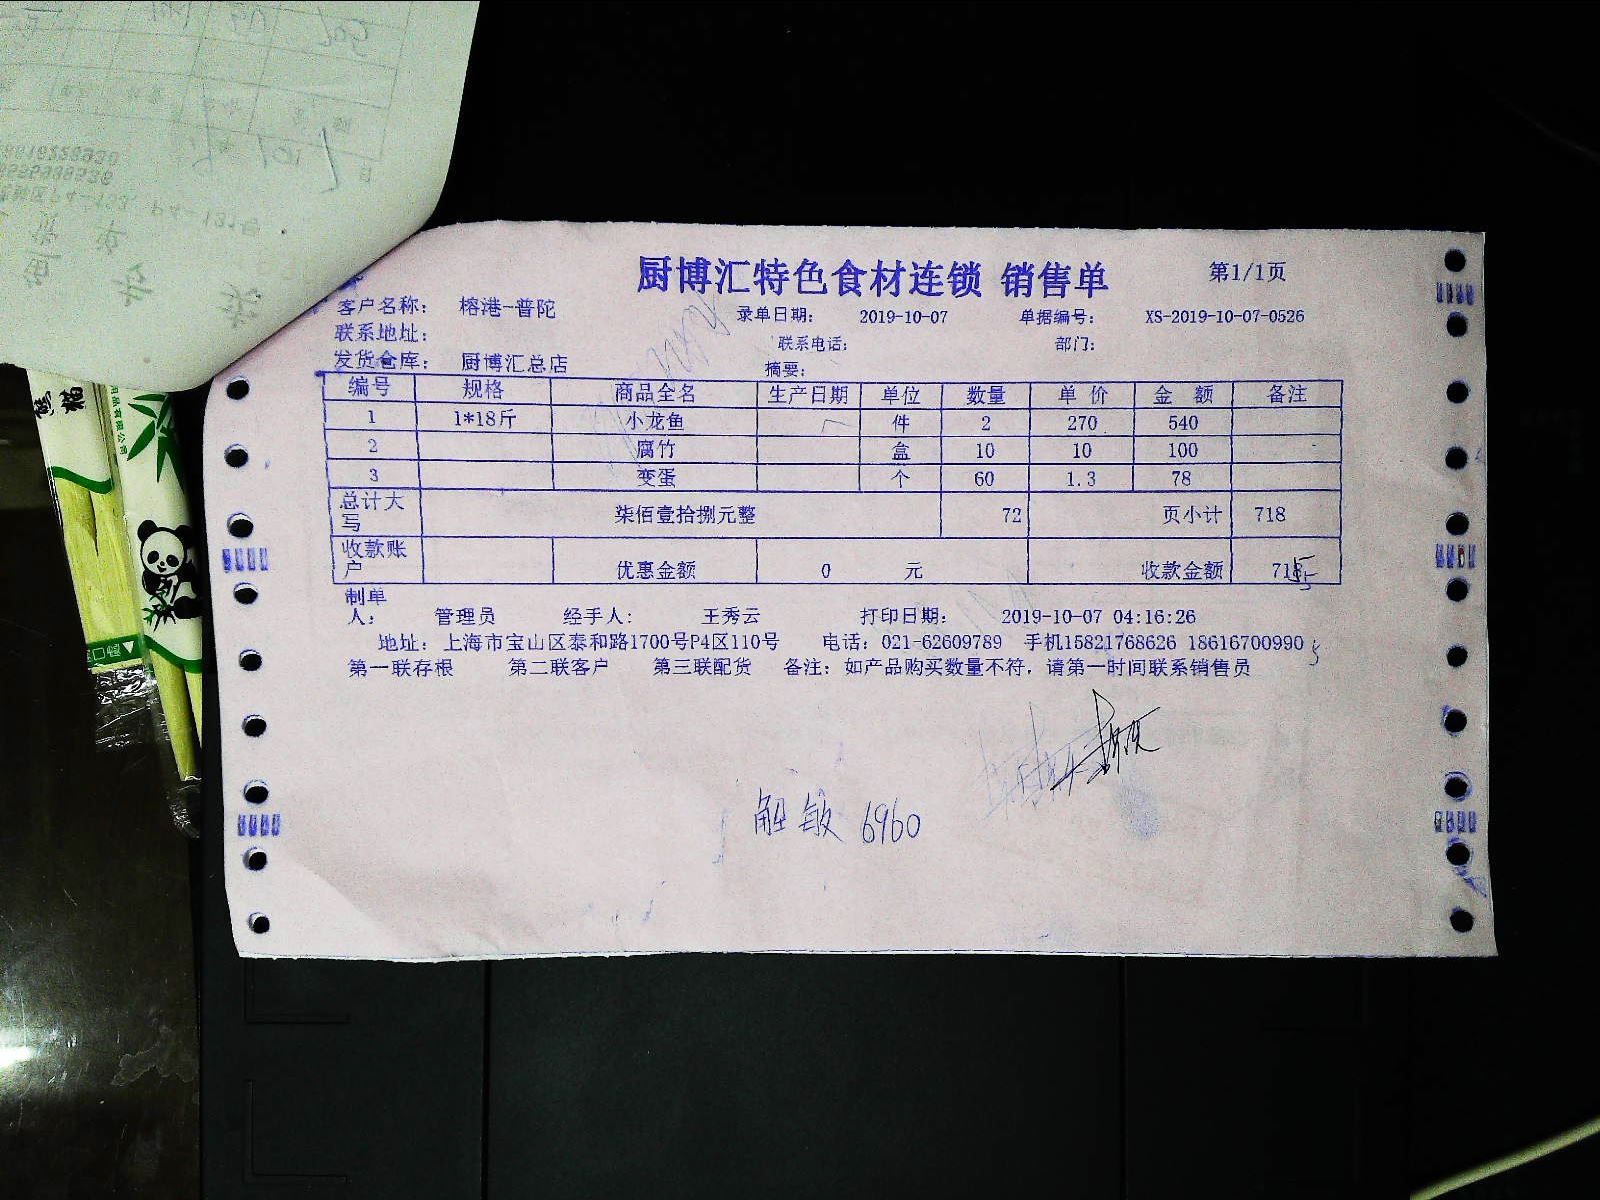 厨博汇特色食材连锁 销售单 第1/1页
客户名称： 榕港-普陀 录单日期： 2019-10-07 单据编号： XS-2019-10-07-0526
联系地址： 联系电话： 部门：
发货仓库： 厨博汇总店 摘要：
编号 规格 商品全名 生产日期 单位 数量 单 价 金 额 备注
1 1*18斤 小龙鱼 件 2 270 540
2 腐竹 盒 10 10 100
3 变蛋 个 60 1.3 78
总计大写 柒佰壹拾捌元整 72 页小计 718
收款账户 优惠金额 0 元 收款金额 718
制单人： 管理员 经手人： 王秀云 打印日期： 2019-10-07 04:16:26
地址：上海市宝山区泰和路1700号P4区110号 电话：021-62609789 手机15821768626 18616700990
第一联存根 第二联客户 第三联配货 备注：如产品购买数量不符，请第一时间联系销售员
6960